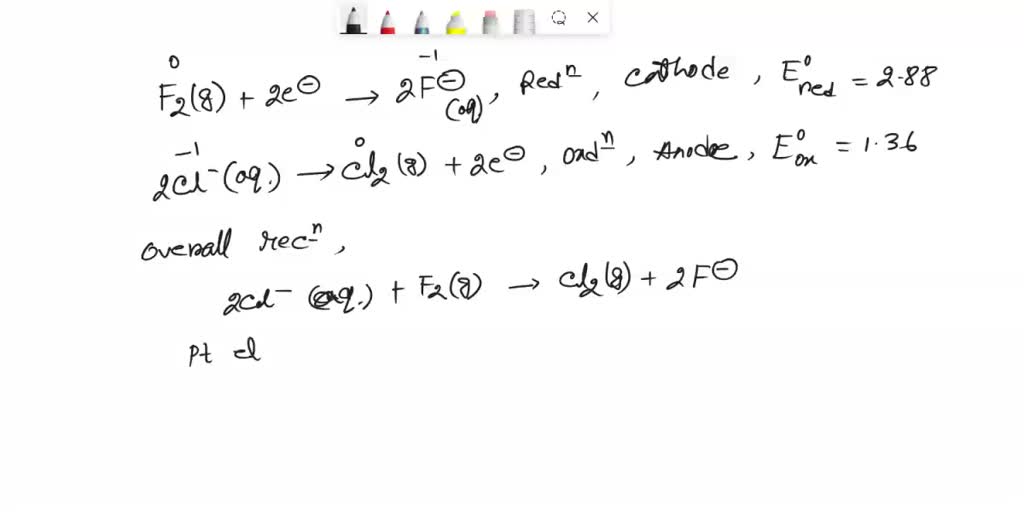 F₂(g) + 2e⊖ → 2F⊖(aq), Redⁿ, Cathode, E⁰red = 2.88
2Cl⁻(aq.) → Cl₂(g) + 2e⊖, oxdⁿ, Anode, E⁰ox = 1.36
overall recⁿ,
2Cl⁻ (aq.) + F₂(g) → Cl₂(g) + 2F⊖
Pt cl